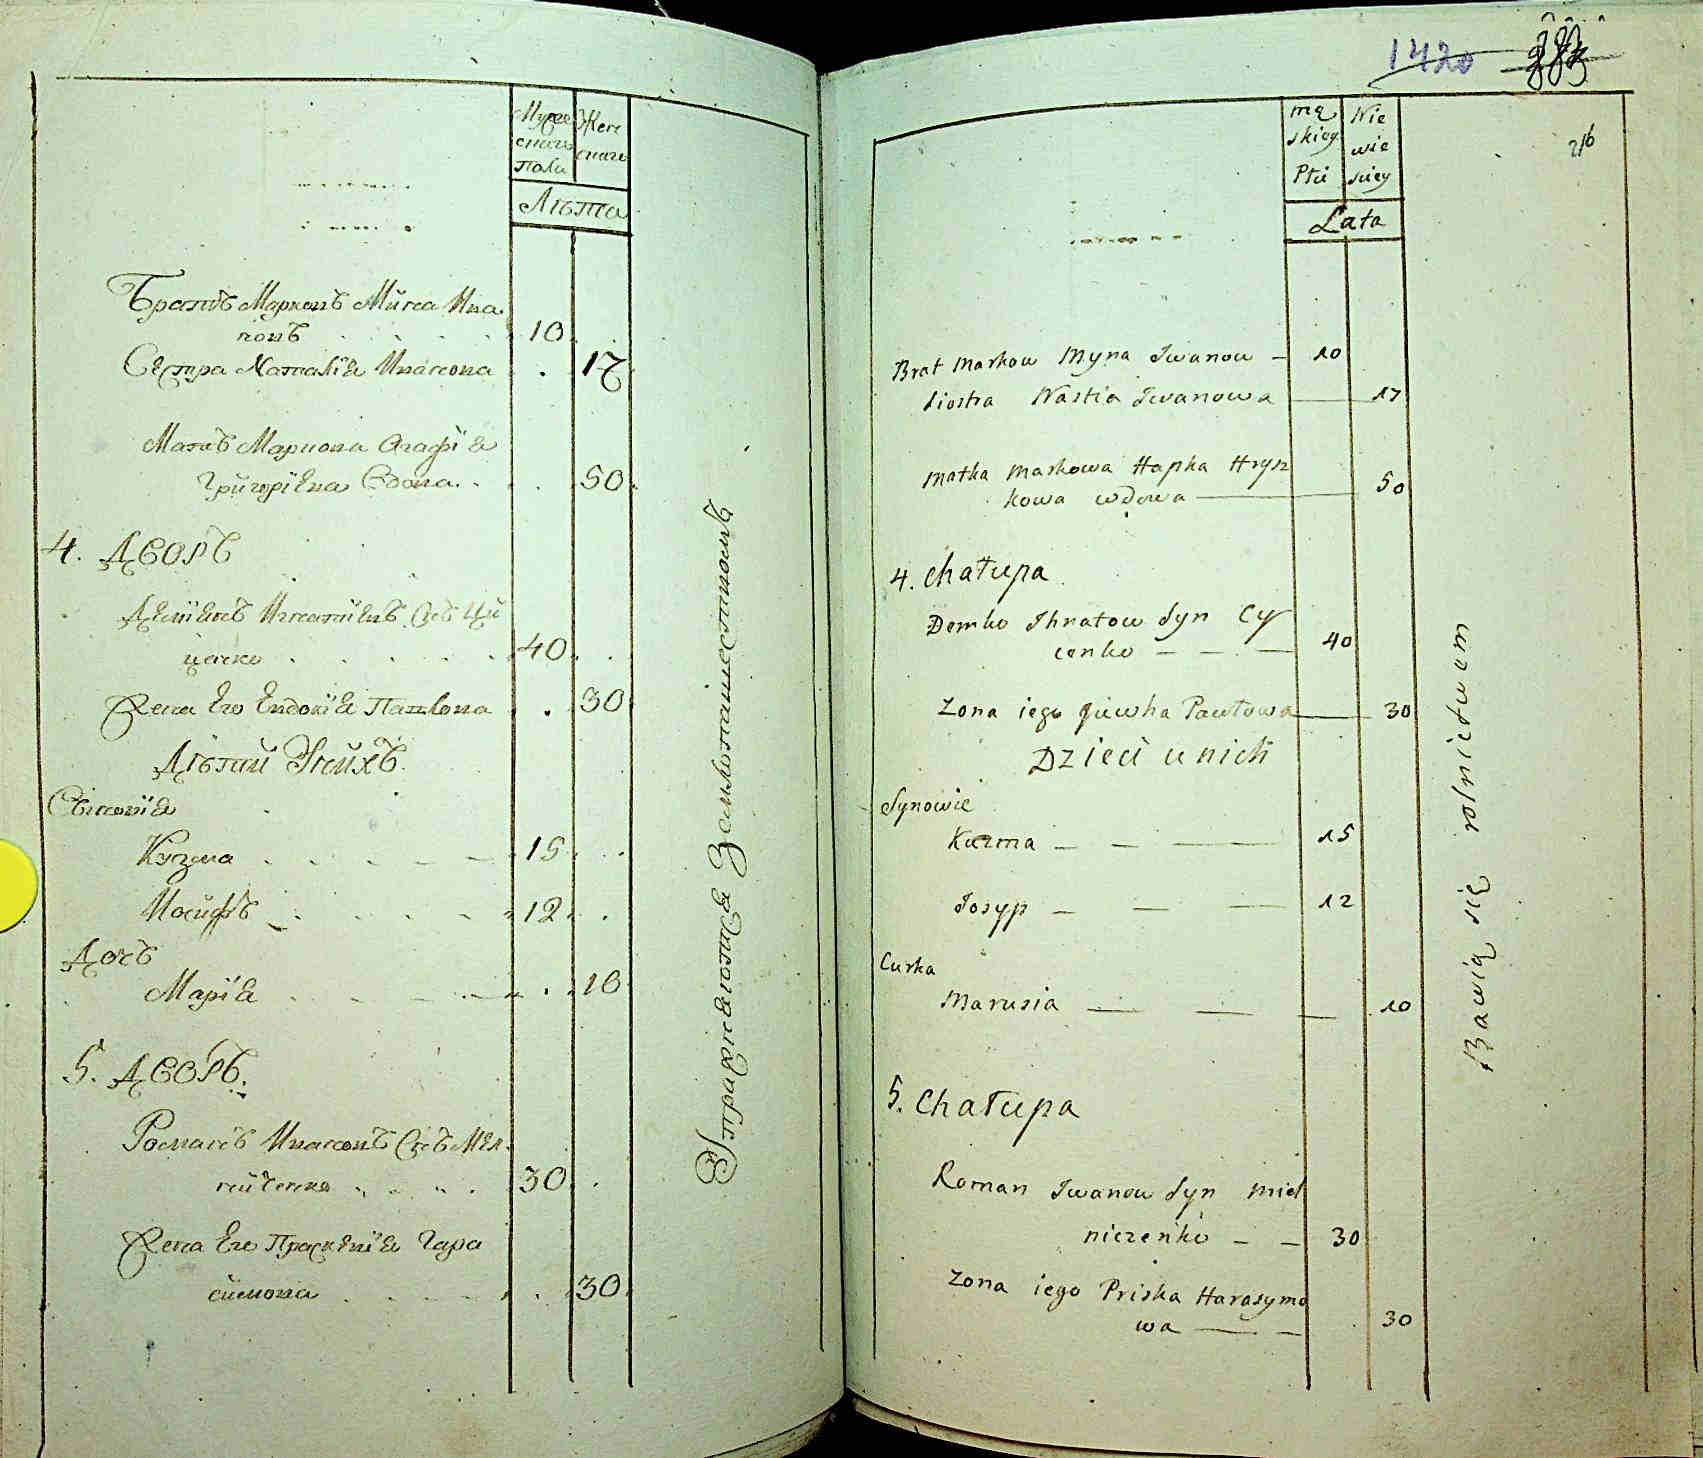 Мужескаго пола
Женскаго
Лѣта
Братъ Марковъ Мина Ива
новъ 10
Сестра Наталія Иванова 17
Мать Маркова Агафія
Григоріева Вдова 50
4. Дворъ
Деміянъ Игнатіевъ Снъ Ци
ценко 40
Жена Его Евдокія Павлова 30
Дѣтей Унихъ
Сыновія
Кузма 15
Иосифъ 12
Дочь
Марія 10
5. Дворъ
Романъ Ивановъ Снъ Мел
ниченко 30
Жена Его Прасковія Гара
симова 30
Упражняются Землепашествомъ
1420
216
mę
skiey
Płci
Nie
wie
sciey
Lata
Brat Markow Myna Iwanow — 10
Siostra Nastia Iwanowa — 17
Matka Markowa Hapka Hryn
kowa wdowa — 50
4. Chałupa
Demko Ihnatow Syn Cy
cenko — — — 40
Zona iego Jiewha Pawłowa — 30
Dzieci u nich
Synowie
Kuzma — — — 15
Josyp — — — 12
Curka
Marusia — — — 10
5. Chałupa
Roman Iwanow Syn Miel
niczenko — — 30
Zona iego Priska Harasymo
wa — — 30
Bawią się rolnictwem